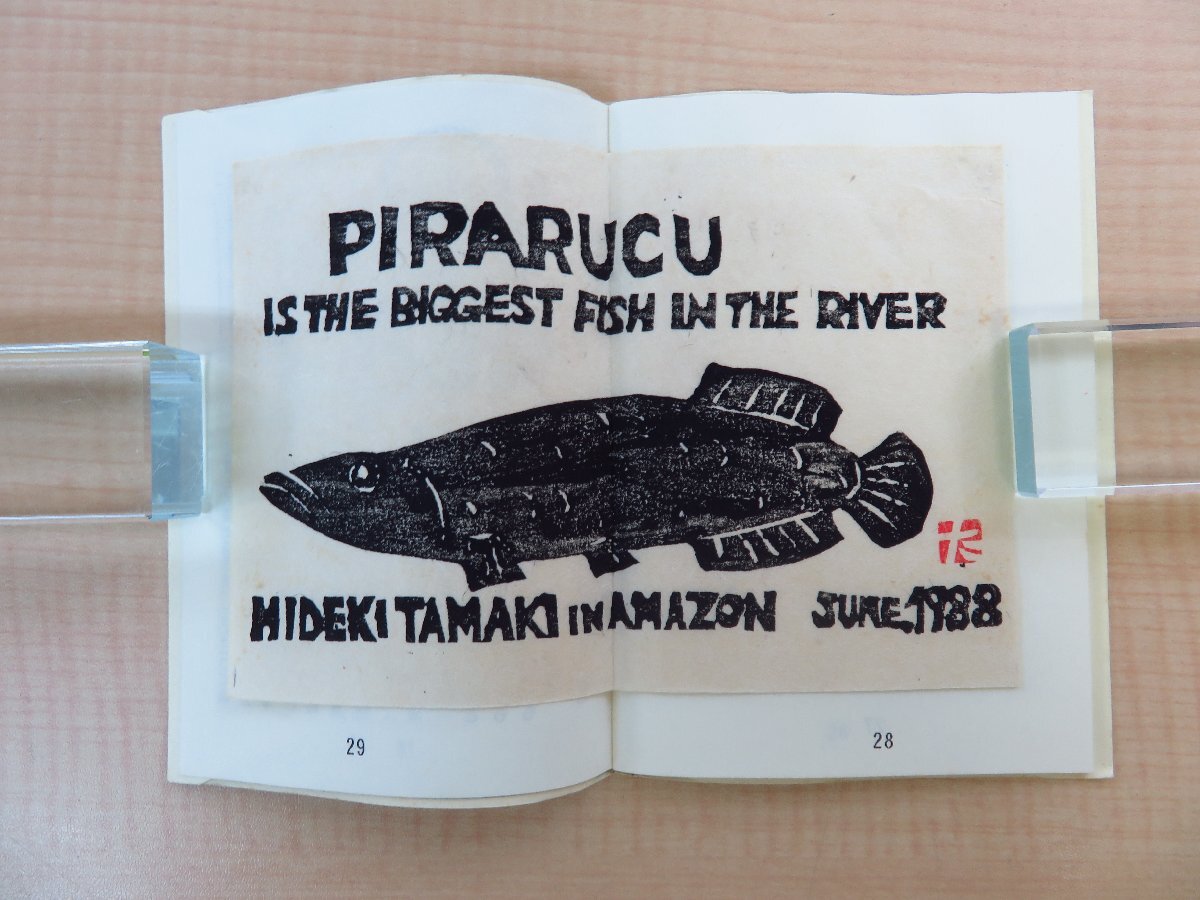 PIRARUCU
IS THE BIGGEST FISH IN THE RIVER
HIDEKI TAMAKI IN AMAZON JUNE, 1988
29
28